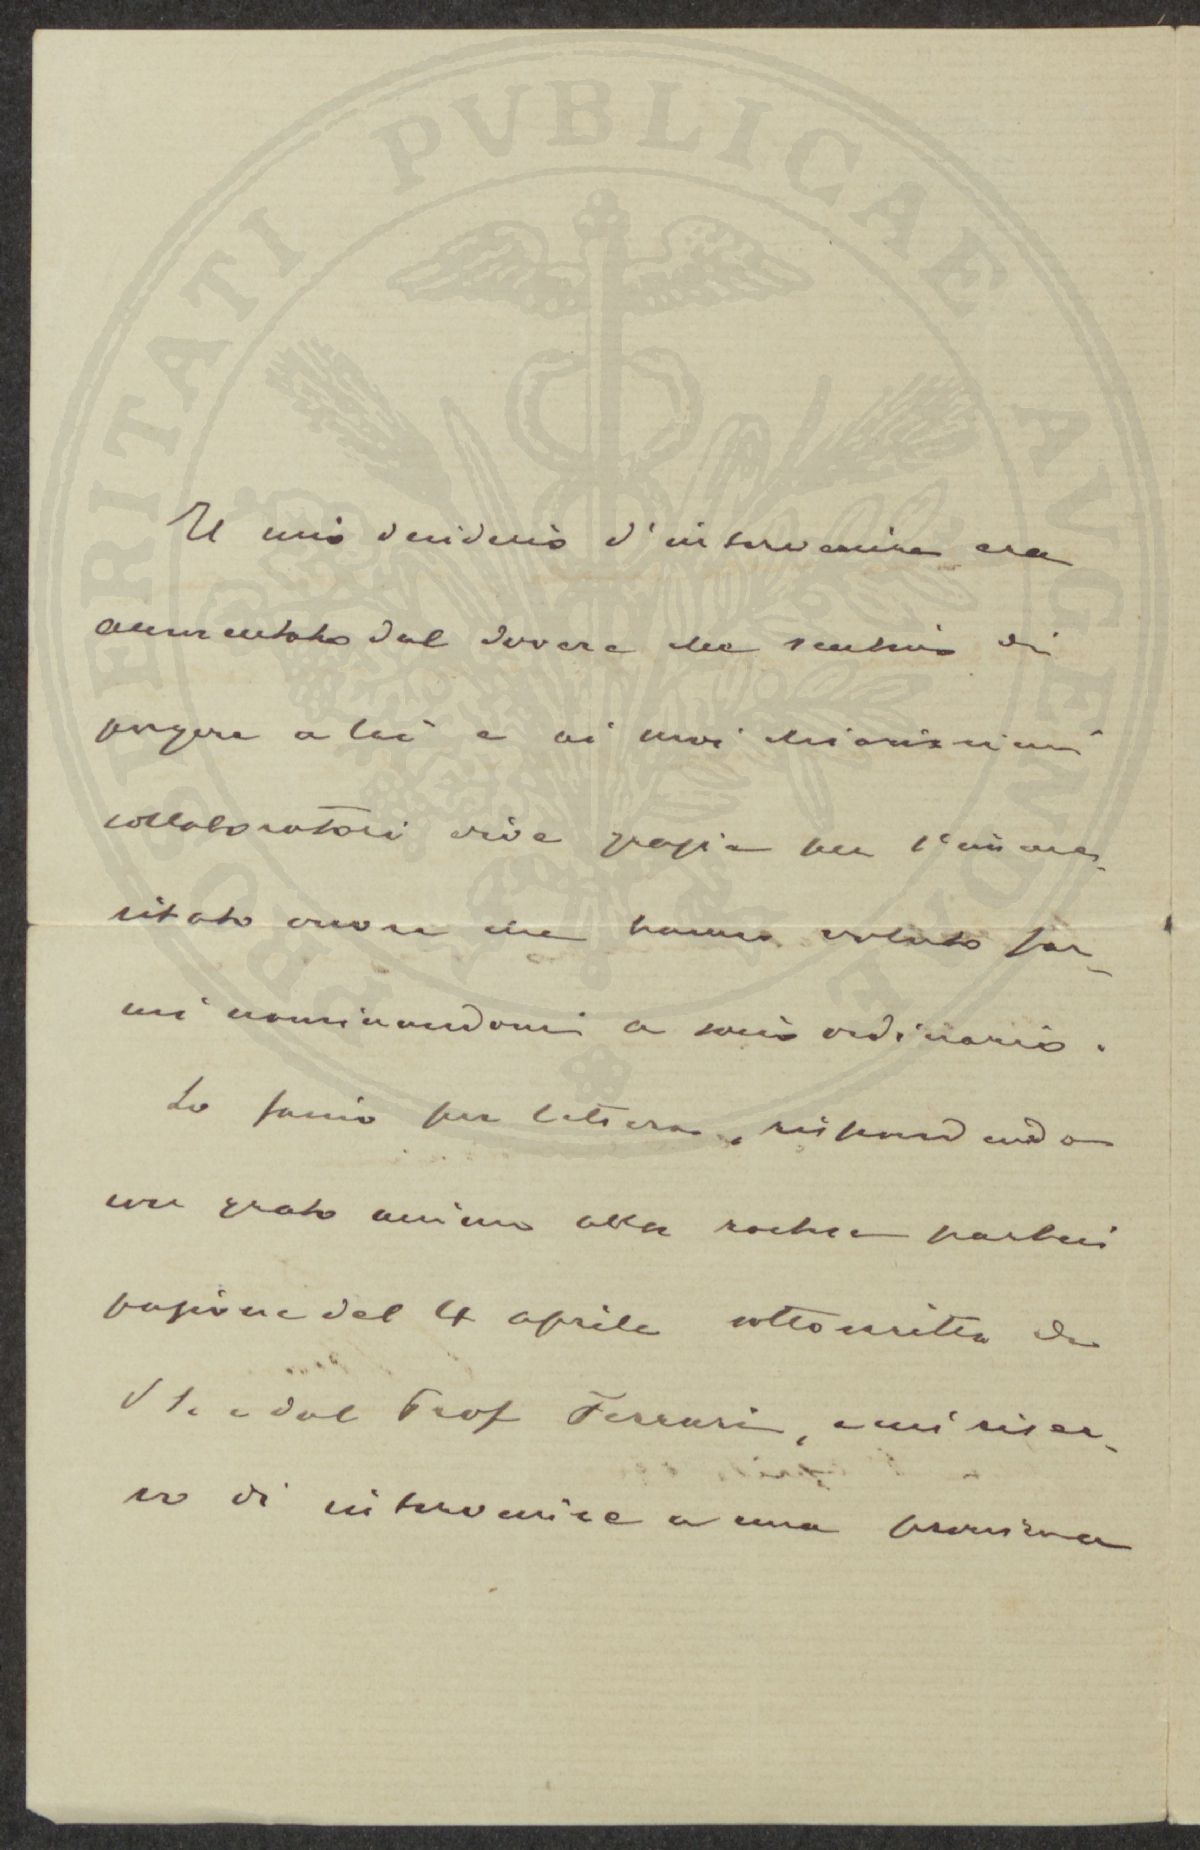 PROSPERITATI PVBLICAE AVGENDAE
Il mio desiderio d'intervenire era
aumentato dal dovere che sentivo di
porgere a lei e ai suoi chiarissimi
collaboratori vive grazie per l'imme-
ritato onore che hanno voluto far-
mi nominandomi a socio ordinario.
Lo faccio per lettera, rispondendo
con grato animo alla parteci
pazione del 4 aprile sottoscritta da
Lei e dal Prof Ferrari, e mi riser-
vo di intervenire a una prossima